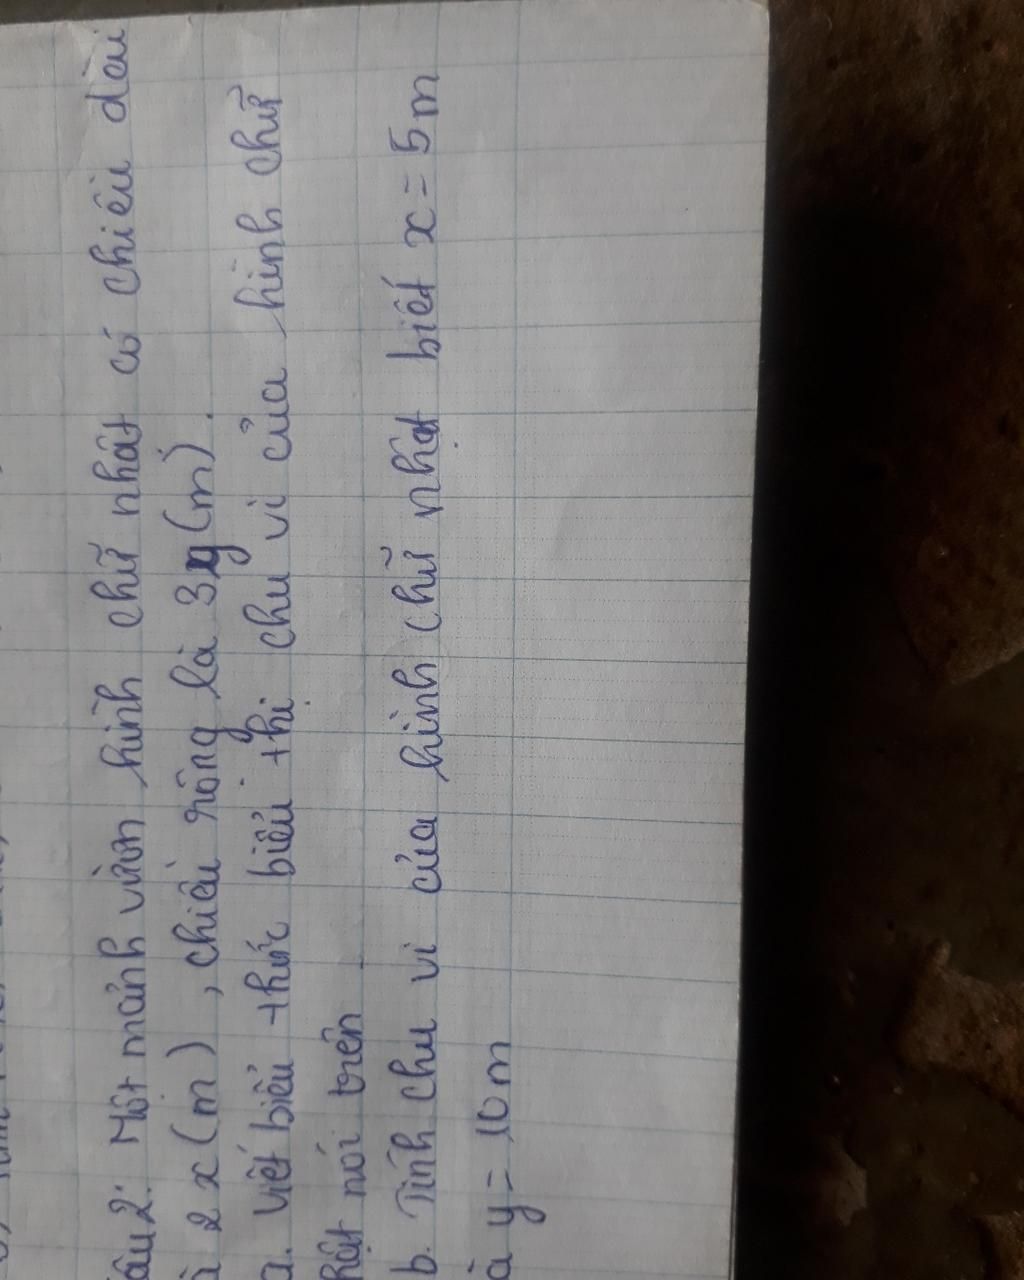 Câu 2: Một mảnh vườn hình chữ nhật có chiều dài
à 2x (m), chiều rộng là 3y (m).
a. Viết biểu thức biểu thị chu vi của hình chữ
hật nói trên
b. Tính chu vi của hình chữ nhật biết x = 5m
à y = 10m